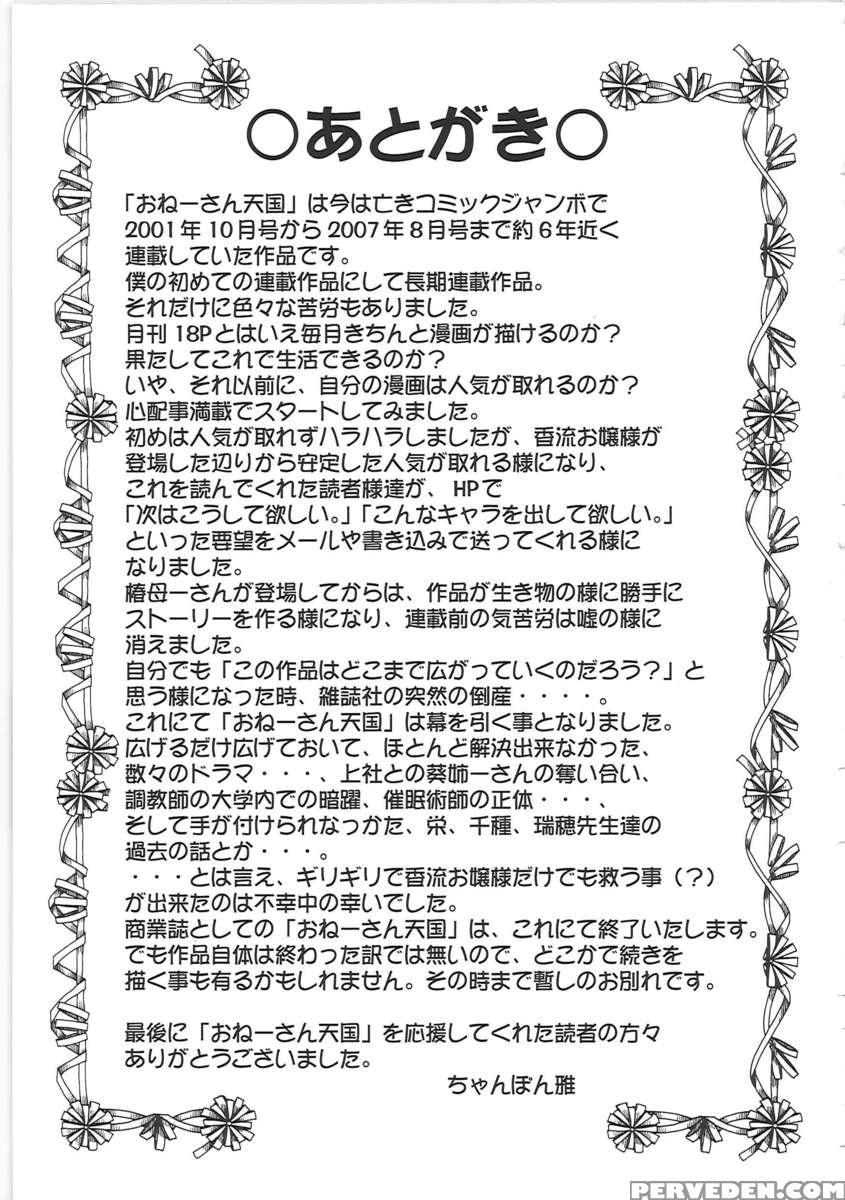 ○あとがき○
「おねーさん天国」は今は亡きコミックジャンボで
2001年10月号から2007年8月号まで約6年近く
連載していた作品です。
僕の初めての連載作品にして長期連載作品。
それだけに色々な苦労もありました。
月刊18Pとはいえ毎月きちんと漫画が描けるのか?
果たしてこれで生活できるのか?
いや、それ以前に、自分の漫画は人気が取れるのか?
心配事満載でスタートしてみました。
初めは人気が取れずハラハラしましたが、香流お嬢様が
登場した辺りから安定した人気が取れる様になり、
これを読んでくれた読者様達が、HPで
「次はこうして欲しい。」「こんなキャラを出して欲しい。」
といった要望をメールや書き込みで送ってくれる様に
なりました。
椿母ーさんが登場してからは、作品が生き物の様に勝手に
ストーリーを作る様になり、連載前の気苦労は嘘の様に
消えました。
自分でも「この作品はどこまで広がっていくのだろう?」と
思う様になった時、雑誌社の突然の倒産・・・・。
これにて「おねーさん天国」は幕を引く事となりました。
広げるだけ広げておいて、ほとんど解決出来なかった、
数々のドラマ・・・、上社との葵姉ーさんの奪い合い、
調教師の大学内での暗躍、催眠術師の正体・・・、
そして手が付けられなっかた、栄、千種、瑞穂先生達の
過去の話とか・・・。
・・・とは言え、ギリギリで香流お嬢様だけでも救う事(?)
が出来たのは不幸中の幸いでした。
商業誌としての「おねーさん天国」は、これにて終了いたします。
でも作品自体は終わった訳では無いので、どこかで続きを
描く事も有るかもしれません。その時まで暫しのお別れです。
最後に「おねーさん天国」を応援してくれた読者の方々
ありがとうございました。
ちゃんぽん雅
PERVEDEN.COM